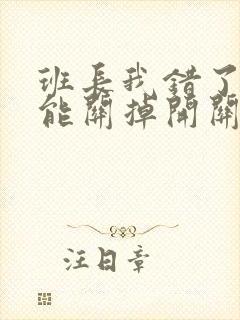 班长我错了
能關掉開關
汪日章